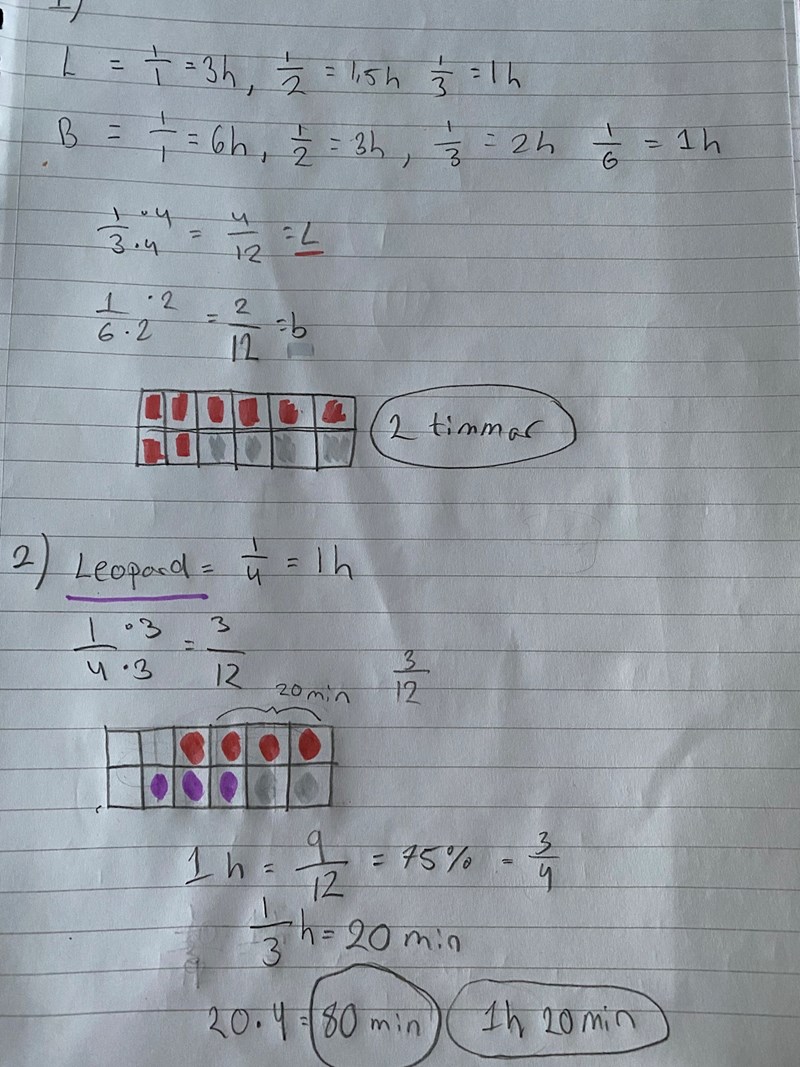 1)
L = 1/1 = 3h, 1/2 = 1,5h 1/3 = 1h
B = 1/1 = 6h, 1/2 = 3h, 1/3 = 2h 1/6 = 1h
1·4/3·4 = 4/12 = L
1·2/6·2 = 2/12 = b
2 timmar
2) Leopard = 1/4 = 1h
1·3/4·3 = 3/12
3/12
20 min
1h = 9/12 = 75% = 3/4
1/3 h = 20 min
20·4 = 80 min 1h 20min